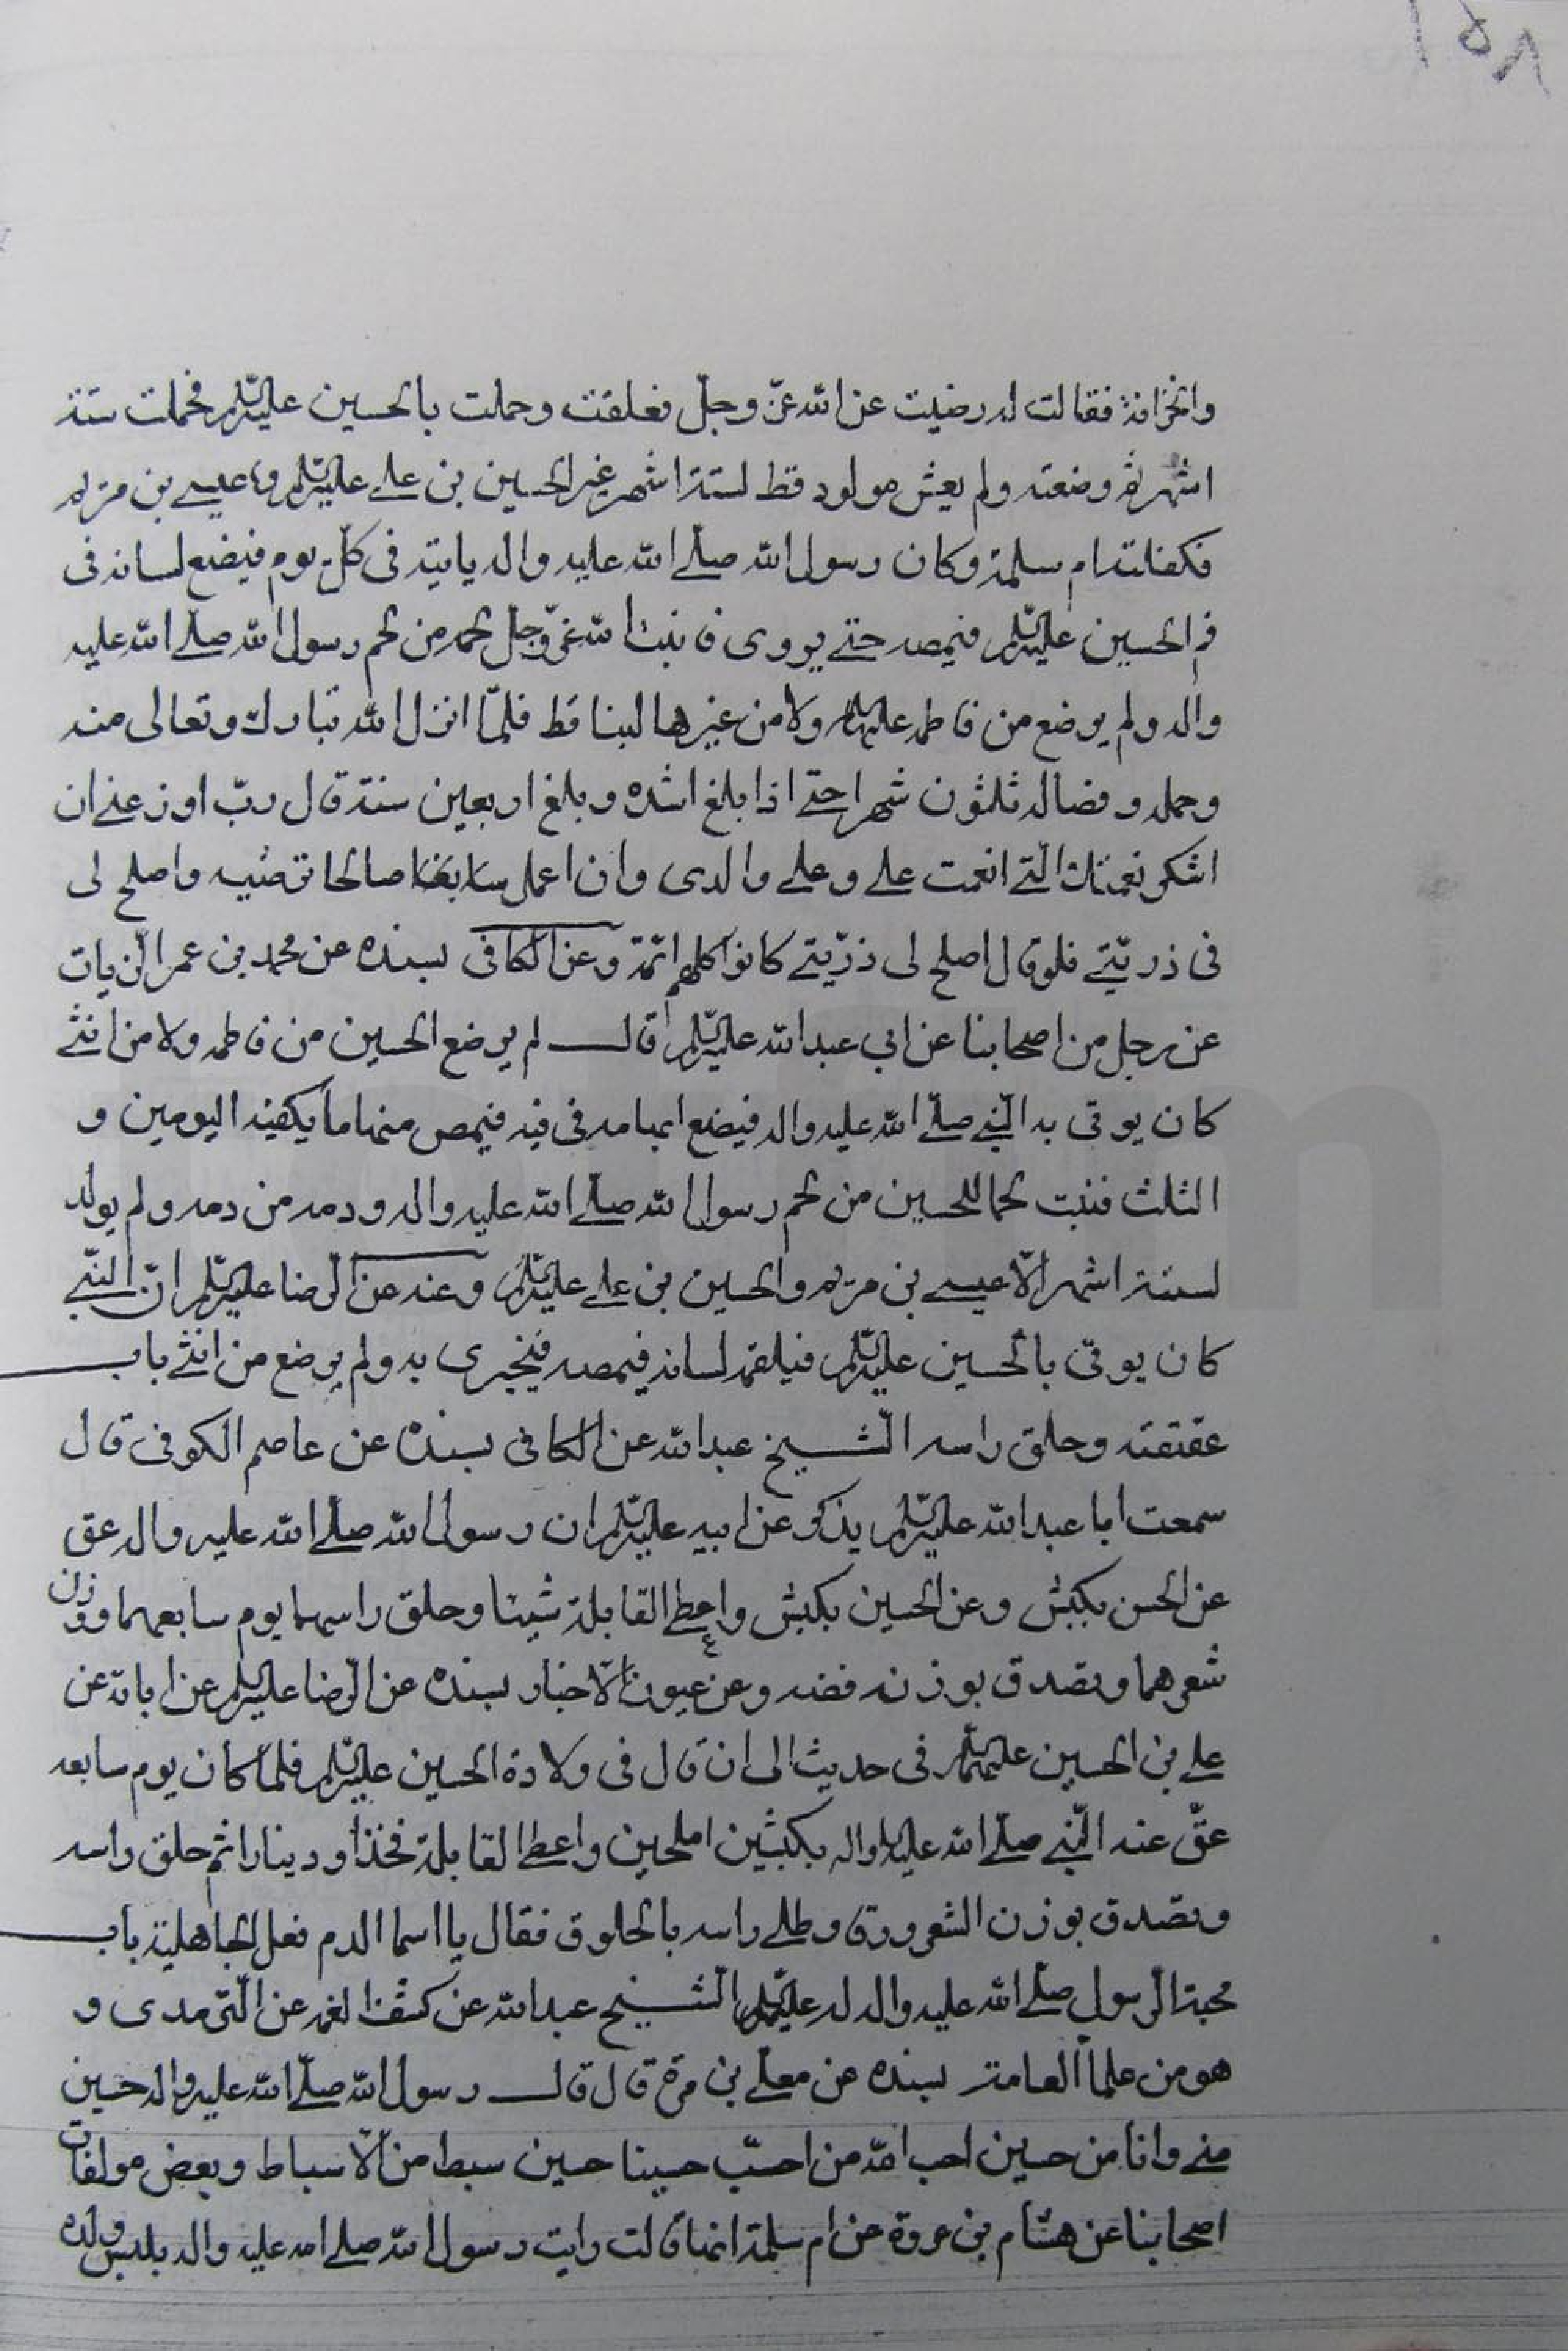 ١٥٨
والخزانة فقالت له رضيت عن الله عزّ وجلّ فعلقت وحملت بالحسين عليه السّلم فحملت ستة
اشهر ثم وضعته ولم يعش مولود قط لستة اشهر غير الحسين بن علے عليه السّلم وعيسے بن مريم
فكفلته ام سلمة وكان رسول الله صلّے الله عليه واله ياتيه فى كلّ يوم فيضع لسانه فى
فم الحسين عليه السّلم فيمصه حتے يروى فانبت الله عزّ وجلّ لحمه من لحم رسول الله صلے الله عليه
واله ولم يرضع من فاطمه عليها السلم ولا من غيرها لبنا قط فلمّا انزل الله تبارك وتعالى منه
وحمله وفصاله ثلثون شهرا حتے اذا بلغ اشده وبلغ اربعين سنة قال ربّ اوزعنے ان
اشكر نعمتك الّتے انعمت علے وعلے والدى وان اعمل صالحا ترضيه واصلح لى
فى ذريّتے فلو قال اصلح لى ذرّيتے كانوا كلهم ائمّة وعن الكافى بسنده عن محمد بن عمر الزيات
عن رجل من اصحابنا عن ابي عبد الله عليه السّلم قال لم يرضع الحسين من فاطمه ولا من انثے
كان يوتى به النّبے صلّے الله عليه واله فيضع ابهامه فى فيه فيمص منها ما يكفيه اليومين و
الثلث فنبت لحما للحسين من لحم رسول الله صلّے الله عليه واله ودمه من دمه ولم يولد
لستة اشهر الّا عيسے بن مريم والحسين بن علے عليه السّلم وعنه عن الرّضا عليه السّلم انّ النبّے
كان يوتى بالحسين عليه السّلم فيلقمه لسانه فيمصه فيجزى به ولم يرضع من انثے باب
عقيقته وحلق راسه الشيخ عبد الله عن الكافى بسنده عن عاصم الكوفى قال
سمعت ابا عبد الله عليه السّلم يذكر عن ابيه عليه السّلم ان رسول الله صلّے الله عليه واله عق
عن الحسن بكبش وعن الحسين بكبش واعطے القابلة شيئا وحلق راسهما يوم سابعهما ووزن
شعرهما وتصدق بوزنه فضه وعن عيون الاخبار بسنده عن الرّضا عليه السّلم عن ابائه عن
علے بن الحسين عليهم السّلم فى حديث الى ان قال فى ولادة الحسين عليه السّلم فلما كان يوم سابعه
عقّ عنه النّبے صلّے الله عليه واله بكبشين املحين واعطے القابلة فخذا ودينارا ثم حلق راسه
وتصدق بوزن الشعر ورقا وطلے راسه بالخلوق فقال يا اسما الدم فعل الجاهلية باب
محبة الرّسول صلّے الله عليه واله له عليه السّلم الشيخ عبد الله عن كشف الغمه عن التّرمذى و
هو من علماء العامة بسنده عن معلے بن مرة قال قال رسول الله صلّے الله عليه واله حسين
منے وانا من حسين احب الله من احبّ حسينا حسين سبط من الاسباط وبعض مولفات
اصحابنا عن هشام بن عروة عن ام سلمة انها قالت رايت رسول الله صلے الله عليه واله يلبس ولده